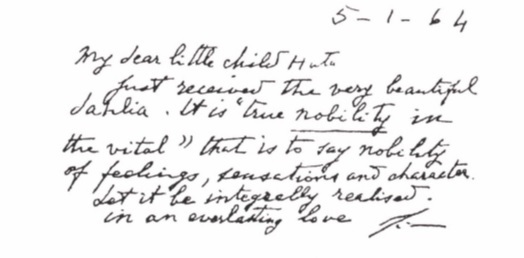 5-1-64
My dear little child Huta
Just received the very beautiful
dahlia. It is "true nobility in
the vital" that is to say nobility
of feelings, sensations and character.
Let it be integrally realised.
in an everlasting love